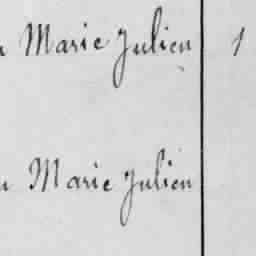 Marie Julien 1
Marie Julien